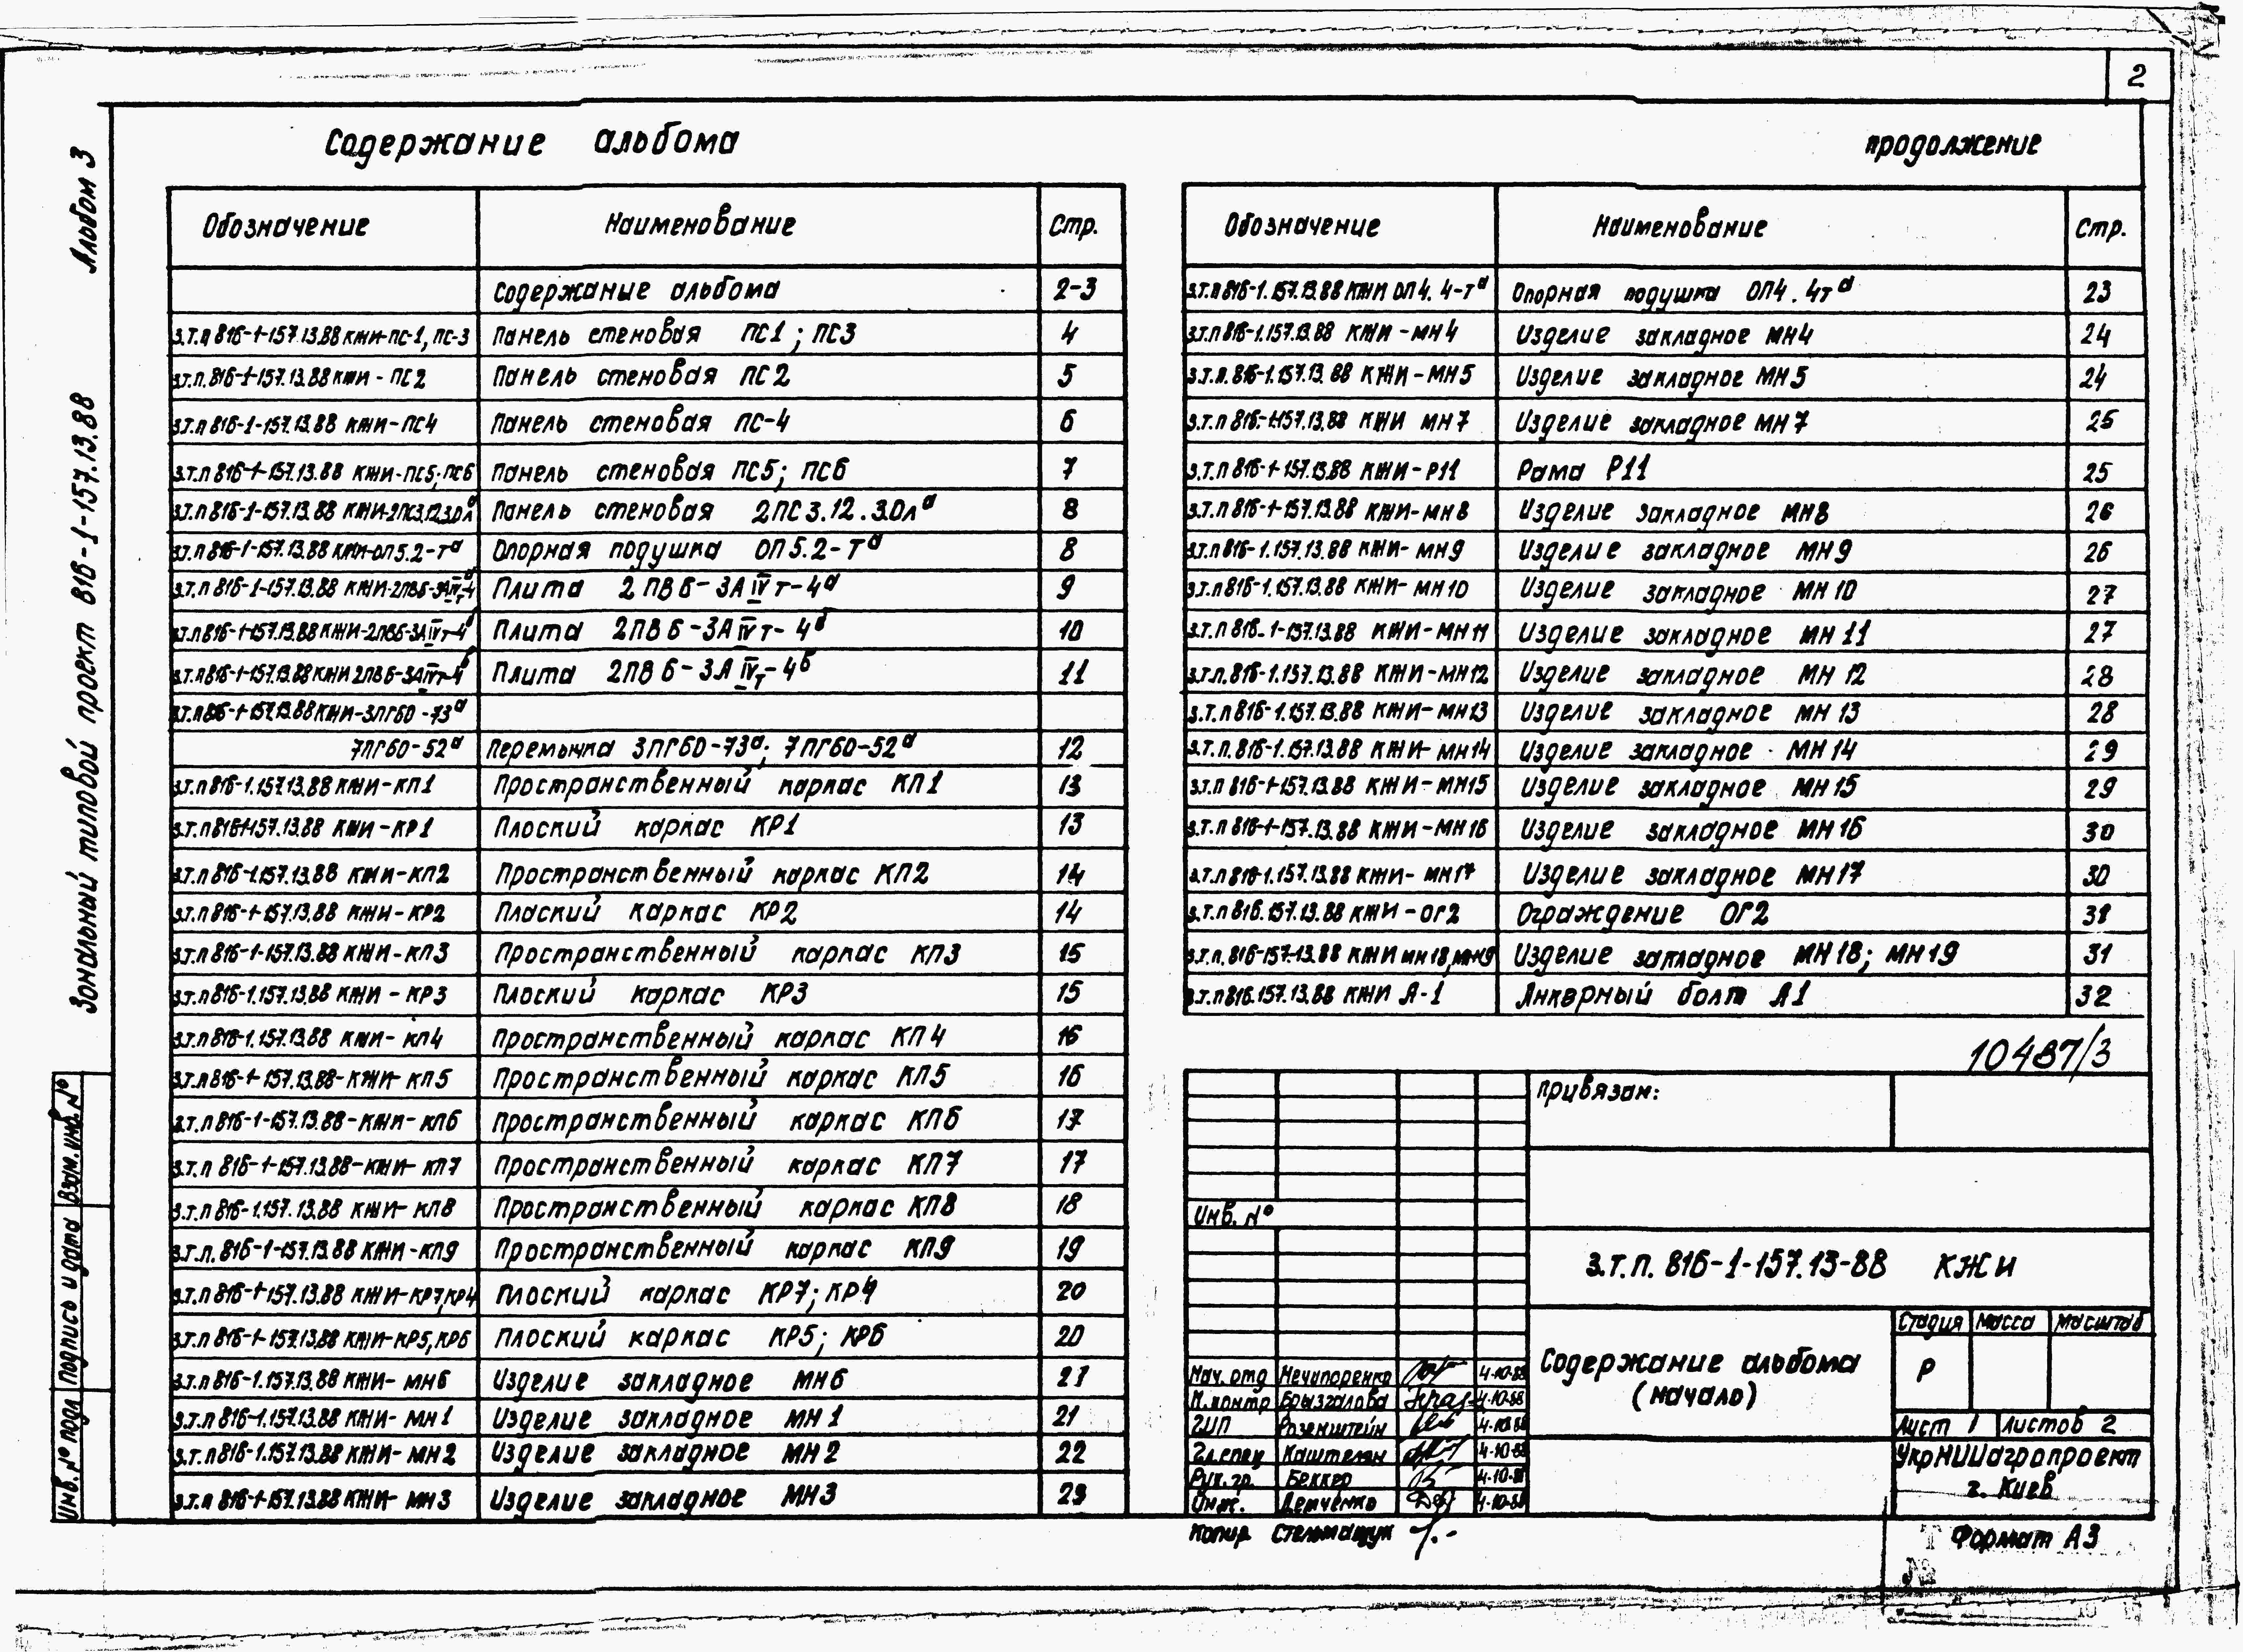 2
Альбом 3
Зональный типовой проект 816-1-157.13.88
Содержание альбома
Обозначение Наименование Стр.
Содержание альбома 2-3
З.Т.П 816-1-157.13.88 КЖИ-ПС-1, ПС-3 Панель стеновая ПС1; ПС3 4
З.Т.П. 816-1-157.13.88 КЖИ - ПС2 Панель стеновая ПС2 5
З.Т.П 816-1-157.13.88 КЖИ-ПС4 Панель стеновая ПС-4 6
З.Т.П 816-1-157.13.88 КЖИ-ПС5; ПС6 Панель стеновая ПС5; ПС6 7
З.Т.П 816-1-157.13.88 КЖИ-2ПС3.12.3.0лª Панель стеновая 2ПС3.12.3.0лª 8
З.Т.П 816-1-157.13.88 КЖИ-ОП5.2-Тª Опорная подушка ОП5.2-Тª 8
З.Т.П 816-1-157.13.88 КЖИ-2ПВ6-3АIVт-4ª Плита 2ПВ6-3АIVт-4ª 9
З.Т.П 816-1-157.13.88 КЖИ-2ПВ6-3АIVт-4б Плита 2ПВ6-3АIVт-4б 10
З.Т.П 816-1-157.13.88 КЖИ 2ПВ6-3АIVт-4б Плита 2ПВ6-3АIVт-4б 11
З.Т.П 816-1-157.13.88 КЖИ-3ПГ60-73ª
7ПГ60-52ª Перемычка 3ПГ60-73ª; 7ПГ60-52ª 12
З.Т.П 816-1.157.13.88 КЖИ-КП1 Пространственный каркас КП1 13
З.Т.П 816-1-157.13.88 КЖИ-КР1 Плоский каркас КР1 13
З.Т.П 816-1.157.13.88 КЖИ-КП2 Пространственный каркас КП2 14
З.Т.П 816-1-157.13.88 КЖИ-КР2 Плоский каркас КР2 14
З.Т.П 816-1-157.13.88 КЖИ-КП3 Пространственный каркас КП3 15
З.Т.П 816-1.157.13.88 КЖИ - КР3 Плоский каркас КР3 15
З.Т.П 816-1.157.13.88 КЖИ- КП4 Пространственный каркас КП4 16
З.Т.П 816-1-157.13.88-КЖИ- КП5 Пространственный каркас КП5 16
З.Т.П 816-1-157.13.88-КЖИ- КП6 Пространственный каркас КП6 17
З.Т.П 816-1-157.13.88-КЖИ- КП7 Пространственный каркас КП7 17
З.Т.П 816-1.157.13.88 КЖИ- КП8 Пространственный каркас КП8 18
З.Т.П. 816-1-157.13.88 КЖИ-КП9 Пространственный каркас КП9 19
З.Т.П 816-1-157.13.88 КЖИ-КР7, КР4 Плоский каркас КР7; КР4 20
З.Т.П 816-1-157.13.88 КЖИ-КР5, КР6 Плоский каркас КР5; КР6 20
З.Т.П 816-1.157.13.88 КЖИ- МН6 Изделие закладное МН6 21
З.Т.П 816-1.157.13.88 КЖИ- МН1 Изделие закладное МН1 21
З.Т.П 816-1.157.13.88 КЖИ- МН2 Изделие закладное МН2 22
З.Т.П 816-1-157.13.88 КЖИ- МН3 Изделие закладное МН3 23
продолжение
Обозначение Наименование Стр.
З.Т.П 816-1.157.13.88 КЖИ ОП4.4-Тª Опорная подушка ОП4.4тª 23
З.Т.П 816-1.157.13.88 КЖИ -МН4 Изделие закладное МН4 24
З.Т.П. 816-1.157.13.88 КЖИ-МН5 Изделие закладное МН5 24
З.Т.П 816-1-157.13.88 КЖИ МН7 Изделие закладное МН7 25
З.Т.П 816-1-157.13.88 КЖИ-Р11 Рама Р11 25
З.Т.П 816-1-157.13.88 КЖИ-МН8 Изделие закладное МН8 26
З.Т.П 816-1.157.13.88 КЖИ- МН9 Изделие закладное МН9 26
З.Т.П 816-1.157.13.88 КЖИ- МН10 Изделие закладное МН10 27
З.Т.П 816-1-157.13.88 КЖИ-МН11 Изделие закладное МН11 27
З.Т.П. 816-1.157.13.88 КЖИ-МН12 Изделие закладное МН12 28
З.Т.П 816-1.157.13.88 КЖИ-МН13 Изделие закладное МН13 28
З.Т.П. 816-1.157.13.88 КЖИ-МН14 Изделие закладное МН14 29
З.Т.П 816-1-157.13.88 КЖИ-МН15 Изделие закладное МН15 29
З.Т.П 816-1-157.13.88 КЖИ-МН16 Изделие закладное МН16 30
З.Т.П 816-1.157.13.88 КЖИ- МН17 Изделие закладное МН17 30
З.Т.П 816.157.13.88 КЖИ-ОГ2 Ограждение ОГ2 31
З.Т.П. 816-157.13.88 КЖИ МН18, МН19 Изделие закладное МН18; МН19 31
З.Т.П 816.157.13.88 КЖИ А-1 Анкерный болт А1 32
10487/3
Привязан:
Инв. №
З.Т.П. 816-1-157.13-88 КЖИ
Содержание альбома
(начало)
Стадия Масса Масштаб
Р
Лист 1 Листов 2
УкрНИИагропроект
г. Киев
Нач. отд Нечипоренко 4-10-88
Н.контр Брызгалова 4-10-88
ГИП Розенштейн 4-10-88
Гл.спец Каштелян 4-10-88
Рук. гр. Беккер 4-10-88
Инж. Демченко 4-10-88
Копир Стельмащук
Формат А3
Инв. № подл Подпись и дата Взам. инв. №